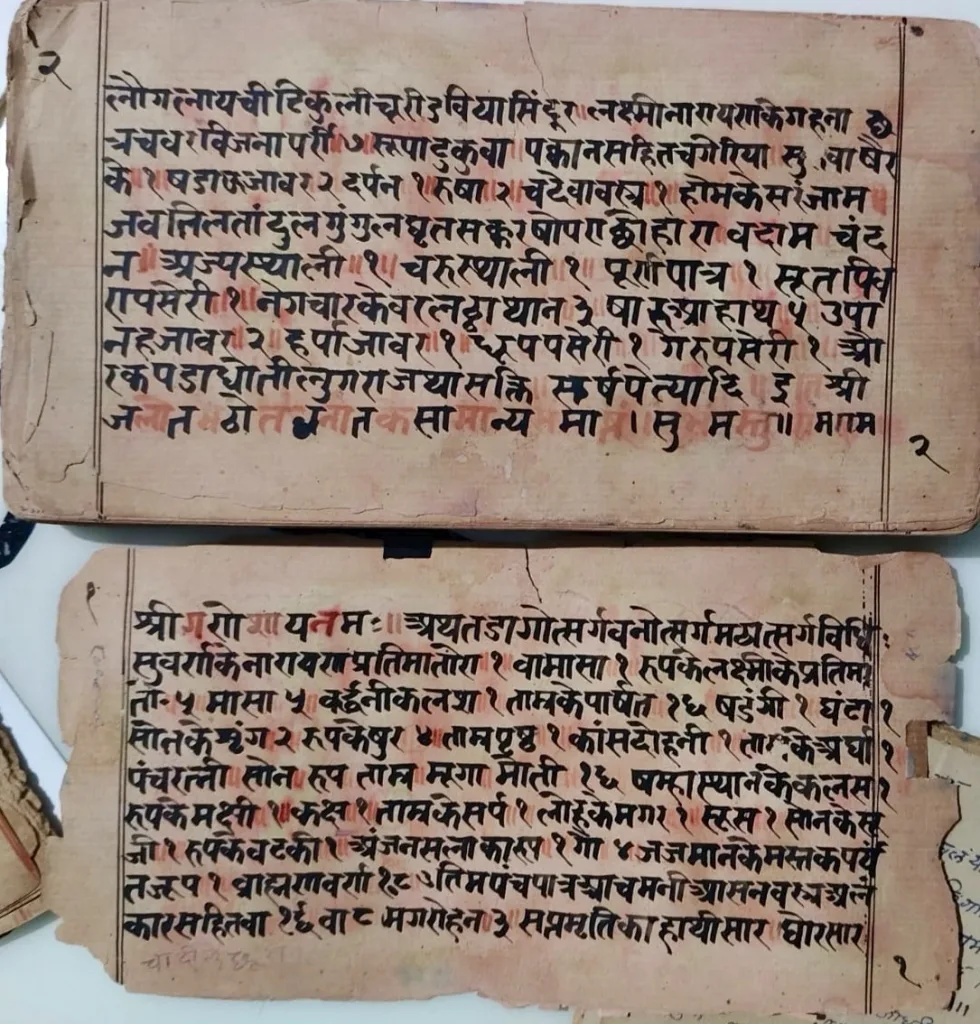 २
लौगलायची टिकुली चूरी ३ विया सिंदुर लक्ष्मीनारायराकेगहना
अचवर विजना परी ७ रूपाटुकुवा पक्कानसहितचगेरिया
के १ षडाऊजावर २ दर्पन १ रुषा २ चदेवावस्त्र १ होमकेसरंजाम
जवतिलतांदुलगुंगुलघृतसक्करषोपरा छोहारा वदाम चंद
न अज्यस्थाली १ चरुस्थाली १ पूर्रापात्र १ सूत पि
रापसेरी १ नगचारकेवरलट्ठा थान ३ षारुआहाथ ५ उपा
नहजावर २ हर्पाजावर १ धूपपसेरी १ गरुपसेरी १ औ
रकपडाधोतीलुगराजथासक्ति सर्षपेत्यादि इ श्री
ज त ठो त सा मान्य मा । सु म स्तु ॥ मगम
२
श्रीगरोशायनमः ॥ अथतडागोत्सर्गवनोत्सर्गमठोत्सर्गविधिः
सुवर्राकेनारायराप्रतिमातोरा १ वामासा १ रुपकेलक्ष्मीकेप्रतिमा
तो॰ ५ मासा ५ वर्द्धनीकलश १ ताम्रकेपार्षत १६ षडंगी १ घंटा १
सोनकेशृंग २ रुपकेषुर ४ ताम्रपृष्ठ १ कांसदोहनी १ ताम्रकेअर्घा १
पंचरत्नी सोन रुप ताम्र मूगा मोती १६ षम्हास्थानकेकलस १
रुपकेमक्षी १ कक्ष १ ताम्रकेसर्प १ लोहूकेमगर १ सूस १ सोनकेसू
जी १ रुपकेवटकी १ अंजनसलाकारूप १ गौ ४ जजमानकेमस्तकपर्यं
तजूप १ ब्राह्मरावर्रा १८ प्रतिमपंचपात्रआचमनीआसनवस्त्रअलं
कारसहितवा १६ वा ८ मगरोहन ३ सप्तमृतिका हाथीसार घोरसार
१